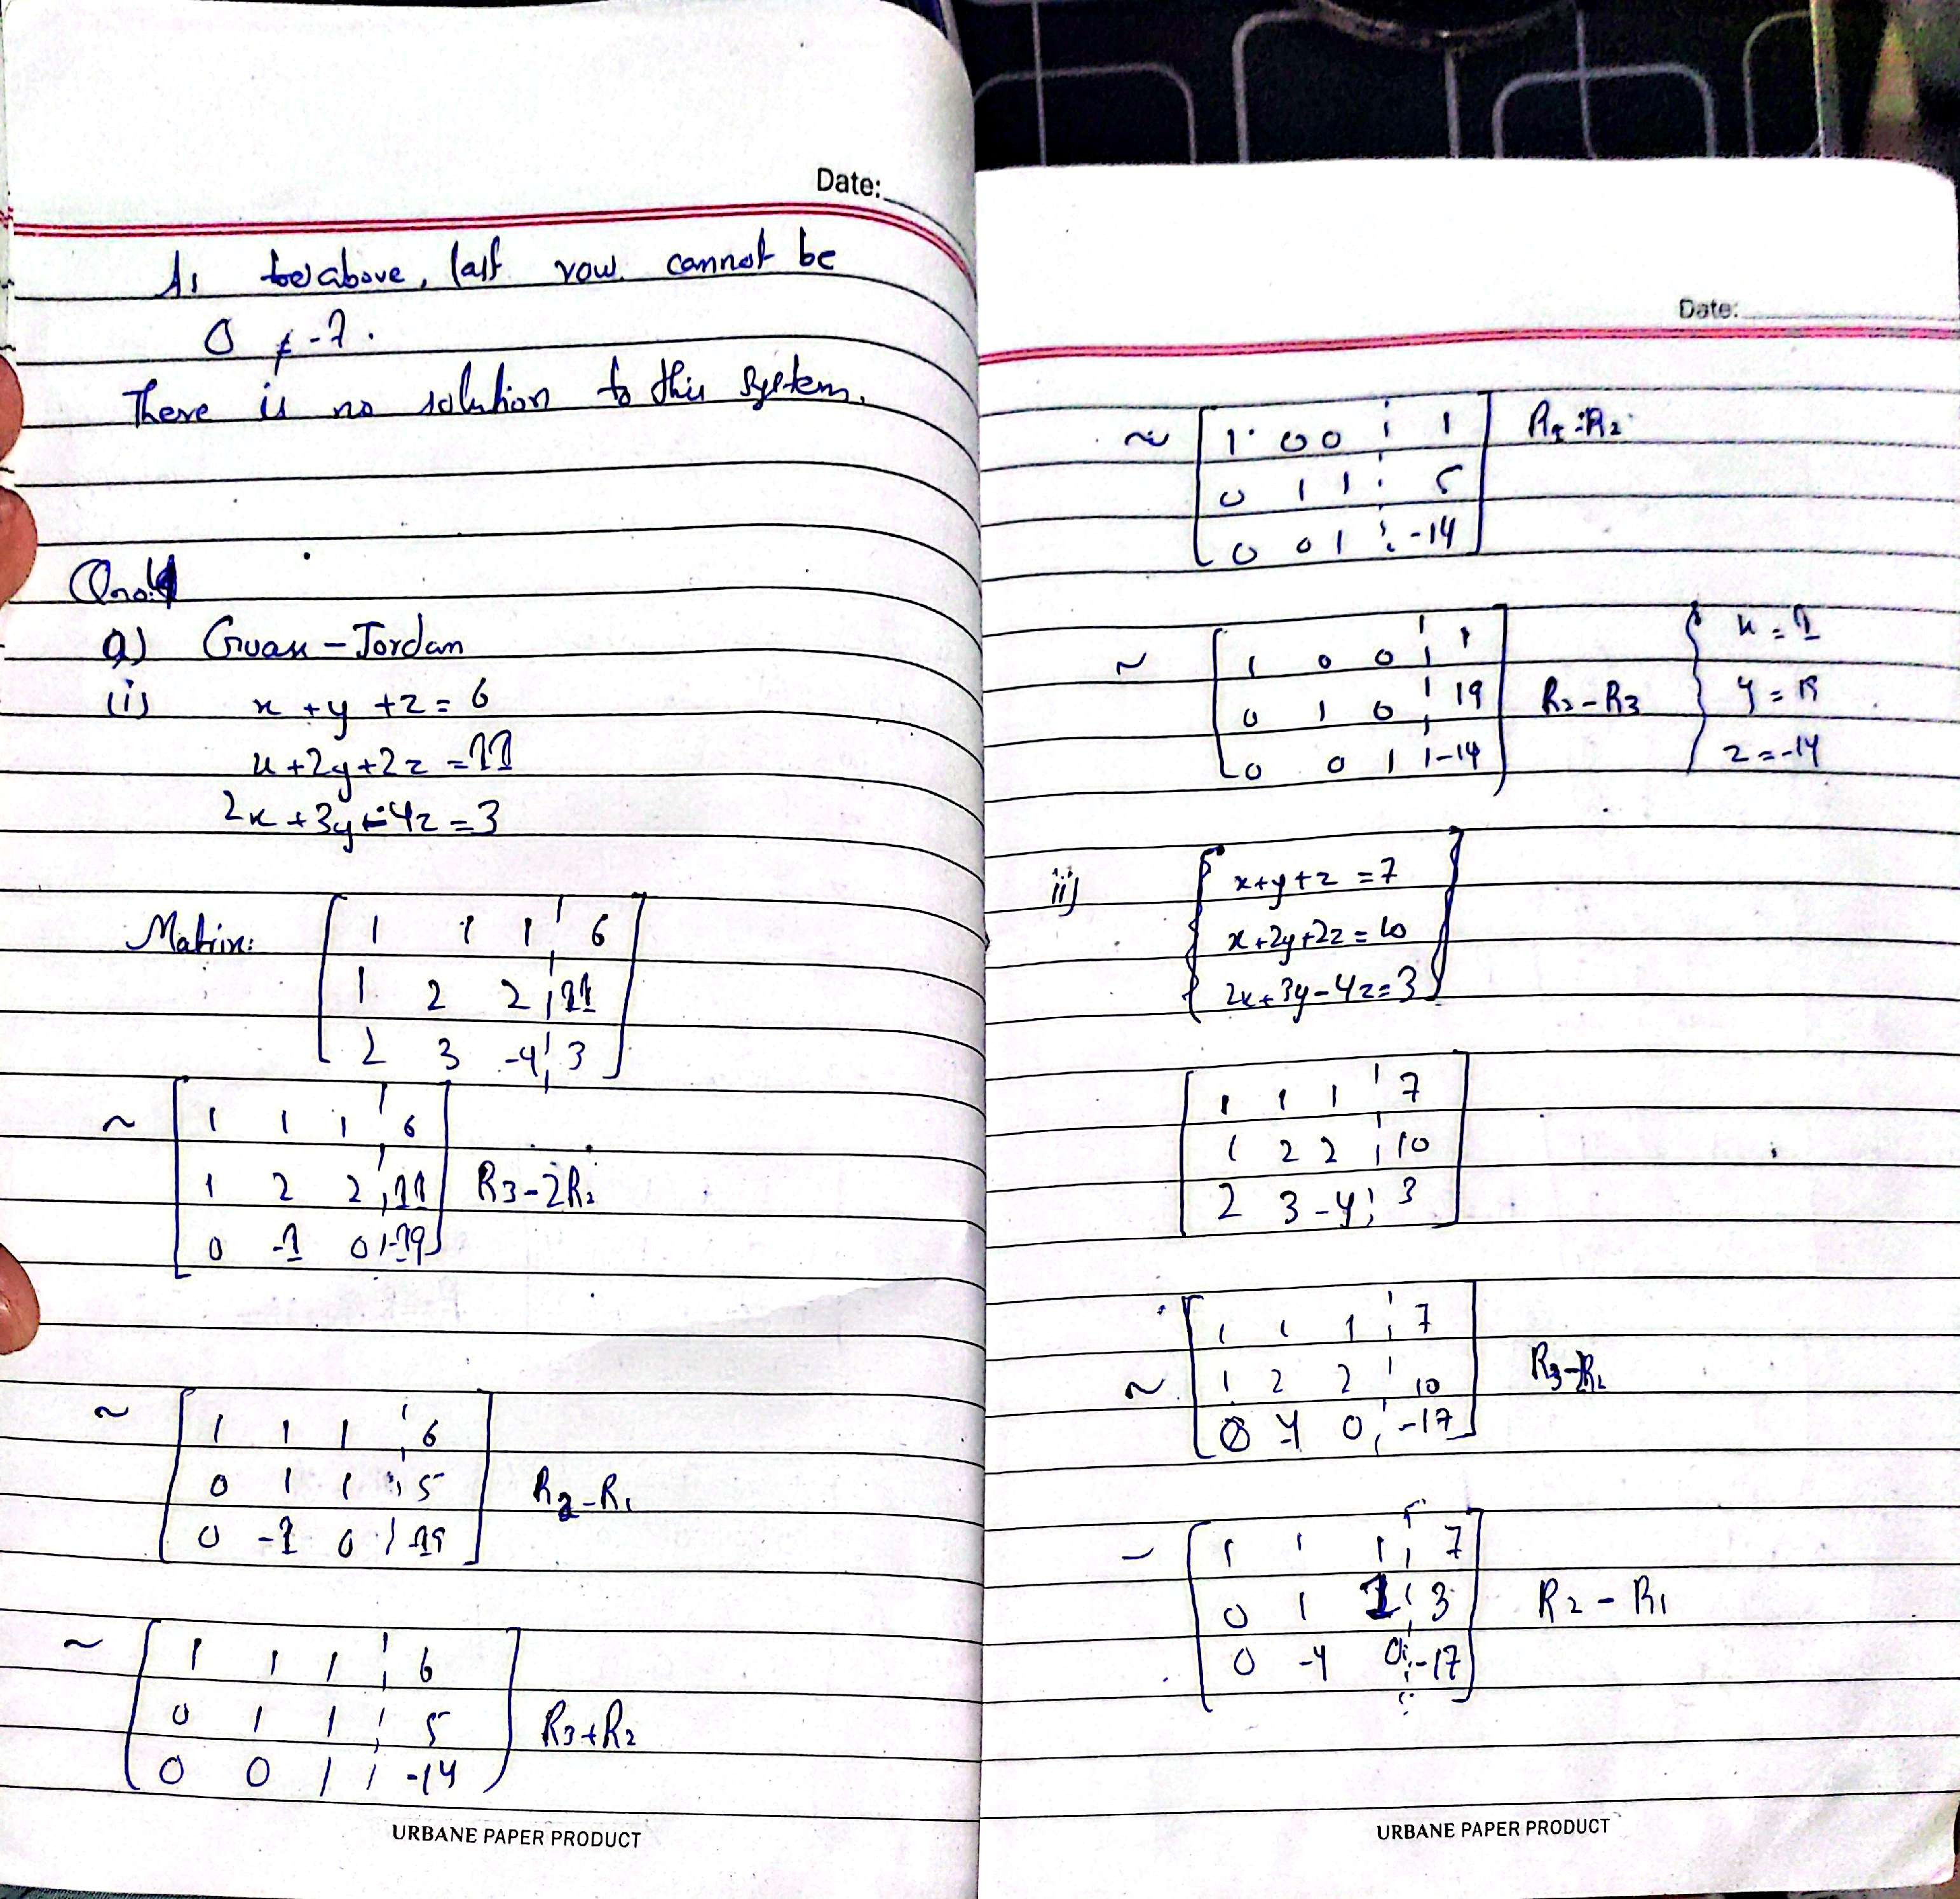 Date:
As above, last row cannot be
0 ≠ -7.
There is no solution to this system.
Qno:4
a) Guass - Jordan
(i) x + y + z = 6
x + 2y + 2z = 11
2x + 3y - 4z = 3
Matrix: [ 1 1 1 ¦ 6
1 2 2 ¦ 11
2 3 -4 ¦ 3 ]
~ [ 1 1 1 ¦ 6
1 2 2 ¦ 11
0 -1 0 ¦ -19 ] R3 - 2R2
~ [ 1 1 1 ¦ 6
0 1 1 ¦ 5
0 -1 0 ¦ 19 ] R2 - R1
~ [ 1 1 1 ¦ 6
0 1 1 ¦ 5
0 0 1 ¦ -14 ] R3 + R2
URBANE PAPER PRODUCT
Date:
~ [ 1 0 0 ¦ 1
0 1 1 ¦ 5
0 0 1 ¦ -14 ] R1 - R2
~ [ 1 0 0 ¦ 1
0 1 0 ¦ 19
0 0 1 ¦ -14 ] R2 - R3
{ x = 1
y = 19
z = -14
ii) { x + y + z = 7
x + 2y + 2z = 10
2x + 3y - 4z = 3 }
[ 1 1 1 ¦ 7
1 2 2 ¦ 10
2 3 -4 ¦ 3 ]
~ [ 1 1 1 ¦ 7
1 2 2 ¦ 10
0 -1 0 ¦ -17 ]
~ [ 1 1 1 ¦ 7
0 1 1 ¦ 3
0 -1 0 ¦ -17 ] R2 - R1
URBANE PAPER PRODUCT